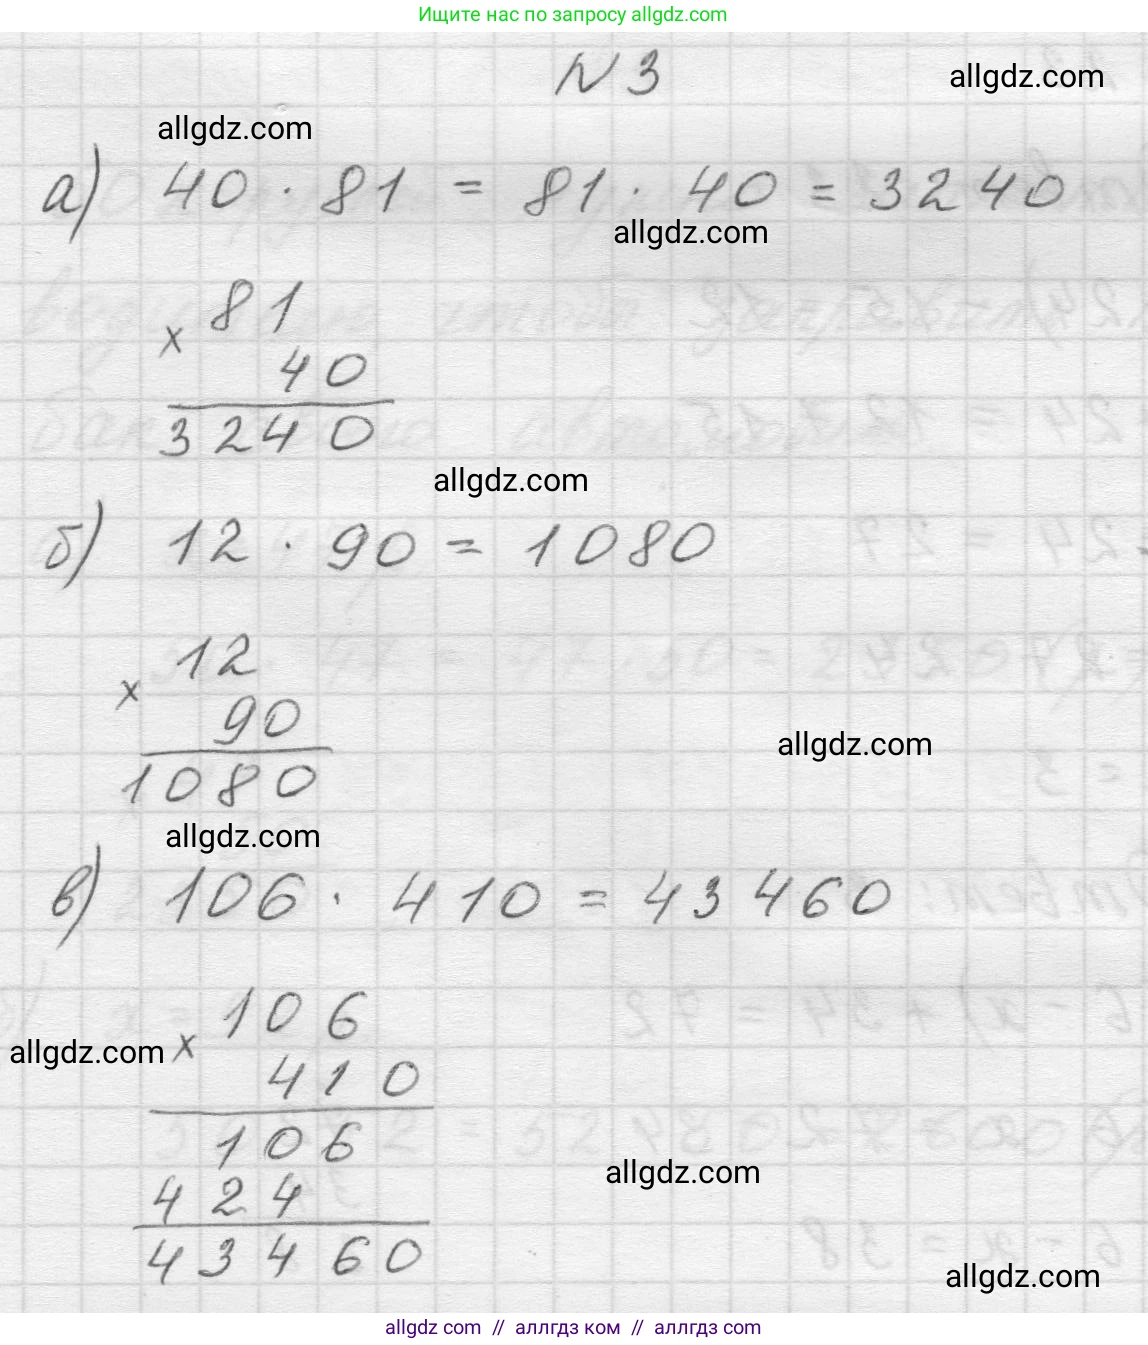 Ищите нас по запросу allgdz.com
N 3
allgdz.com
allgdz.com
а) 40 · 81 = 81 · 40 = 3240
allgdz.com
81
×
40
3240
allgdz.com
б) 12 · 90 = 1080
12
×
90
1080
allgdz.com
allgdz.com
в) 106 · 410 = 43460
106
allgdz.com ×
410
106
424
allgdz.com
43460
allgdz.com
allgdz com // аллгдз ком // аллгдз com